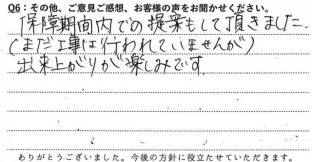 Q6：その他、ご意見ご感想、お客様の声をお聞かせください。
保障期間内での提案もして頂きました。
（まだ工事は行われていませんが）
出来上がりが楽しみです。
ありがとうございました。今後の方針に役立たせていただきます。